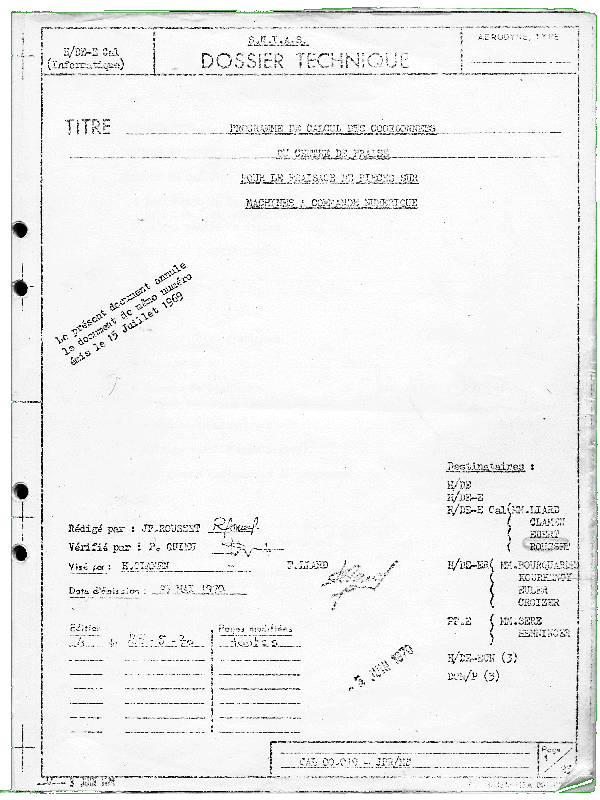 H/DE-E Cal
(Informatique)
S.N.I.A.S.
DOSSIER TECHNIQUE
AERODYNE, TYPE
TITRE
PROGRAMME DE CALCUL DES COORDONNEES
DU CENTRE DE FRAISE
POUR LE FRAISAGE DE PIECES SUR
MACHINES A COMMANDE NUMERIQUE
Le présent document annule
le document de même numéro
émis le 15 Juillet 1969
Destinataires :
H/DE
H/DE-E
H/DE-E Cal MM.LIARD
CLAMEN
EBERT
ROUSSET
H/DE-ER MM.BOURQUARDEZ
EULER
CROIZER
MM.SERE
HENNINGER
H/DE-DCN (3)
DCN/P (3)
Rédigé par : JP.ROUSSET
Vérifié par : P.
Visé par : K.CLAMEN
F.LIARD
Date d'émission : MAI 1970
Edition
Pages modifiées
A du 25-5-70 toutes
- 3 JUIN 1970
CAL 00.019 - JPR/
Page
1
- 3 JUIN